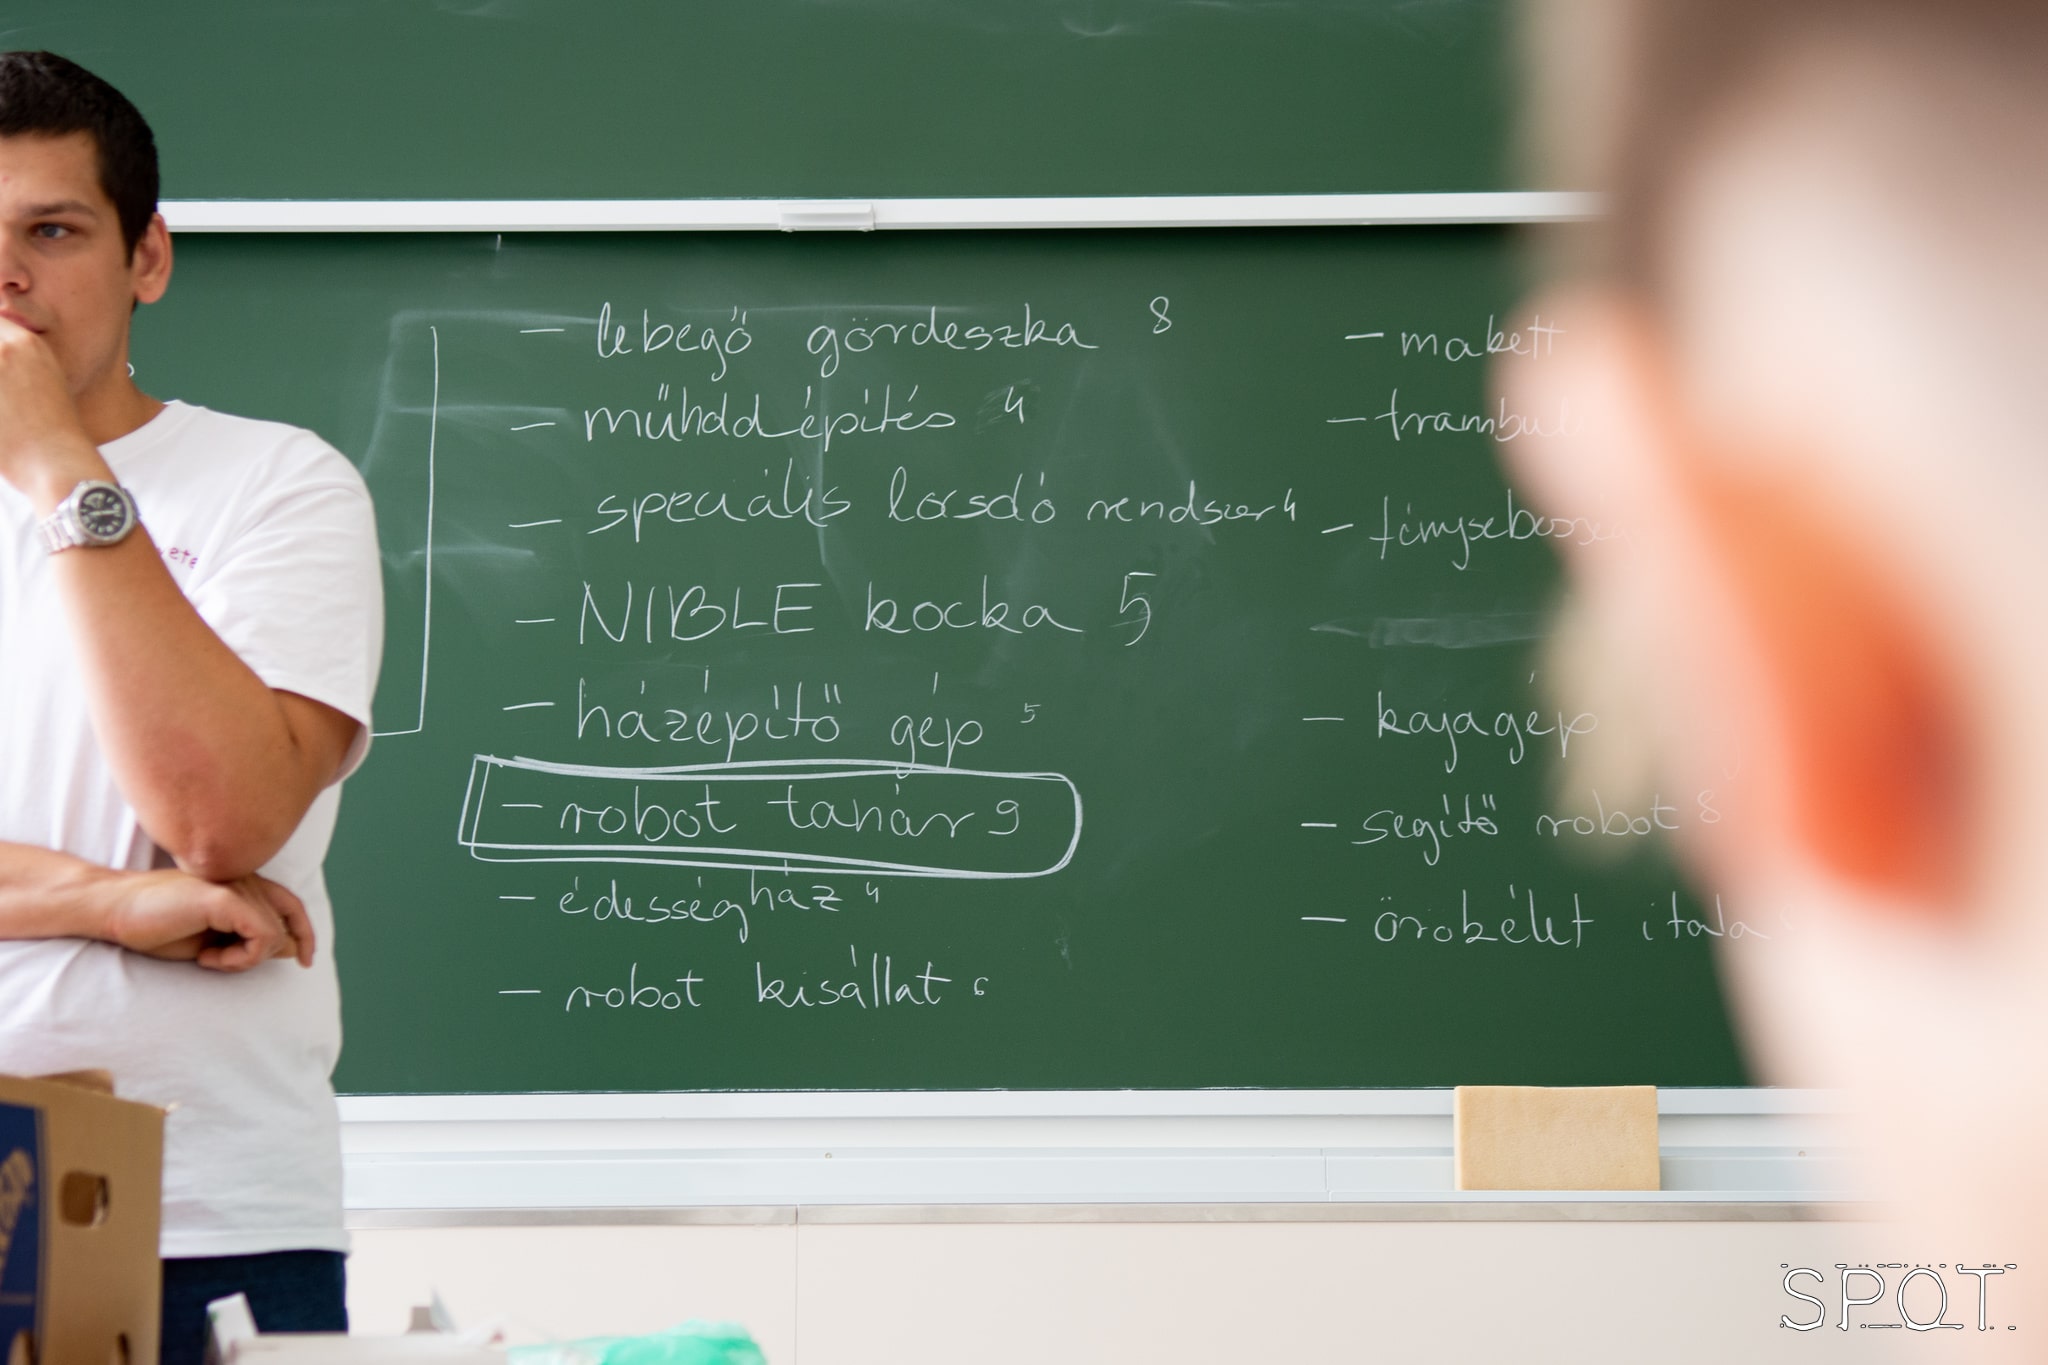 - lebegő gördeszka 8
- műhold építés 4
- speciális locsoló rendszer 4
- NIBLE kocka 5
- házépítő gép 5
- robot tanár 9
- édességház 4
- robot kisállat 6
- makett
- trambul
- fénysebesség
- kajagép
- segítő robot 8
- örökélet itala
SPOT